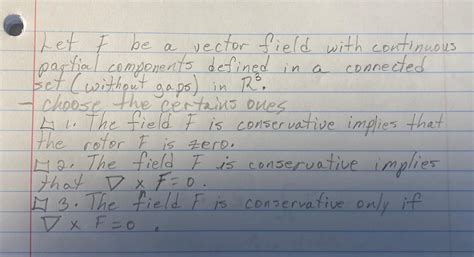 Let F be a vector field with continuous
partial components defined in a connected
set (without gaps) in R³.
- choose the certains ones
□ 1. The field F is conservative implies that
the rotor F is zero.
□ 2. The field F is conservative implies
that ∇ x F = 0.
□ 3. The field F is conservative only if
∇ x F = 0.